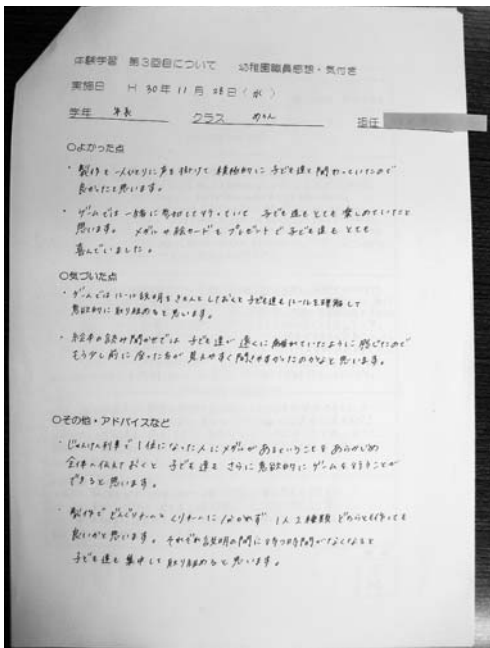 体験学習 第3回目について 幼稚園職員感想・気付き
実施日 H 30年 11月 28日(水)
学年 年長 クラス 担任
○よかった点
・製作も一人ひとりに声を掛けて積極的に子ども達と関わっていたので
良かったと思います。
・ゲームでは一緒に参加して行っていて 子ども達もとても楽しめていたと
思います。 メダルや絵カードもプレゼントで子ども達もとても
喜んでいました。
○気づいた点
・ゲームではルール説明をきちんとしておくと子ども達もルールを理解して
意欲的に取り組めると思います。
・絵本の読み聞かせでは 子ども達が遠くに離れていたように感じたので
もう少し前に座った方が見えやすく聞きやすかったのかなと思います。
○その他・アドバイスなど
・じゃんけん列車で1位になった人にメダルがあるということをあらかじめ
全体へ伝えておくと 子ども達もさらに意欲的にゲームを行うことが
できると思います。
・製作でどんぐりチームとくりチームに分かれず 1人2種類どちらも作っても
良いかと思います。それぞれ説明の間に待つ時間がなくなると
子ども達も集中して取り組めると思います。